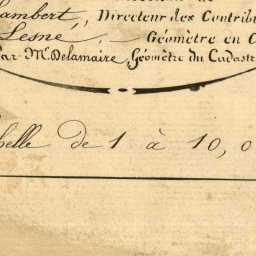 Lambert, Directeur des Contrib
Lesne, Géomètre en C
Par Mr. Delamaire, Géomètre du Cadastr
helle de 1 à 10,0